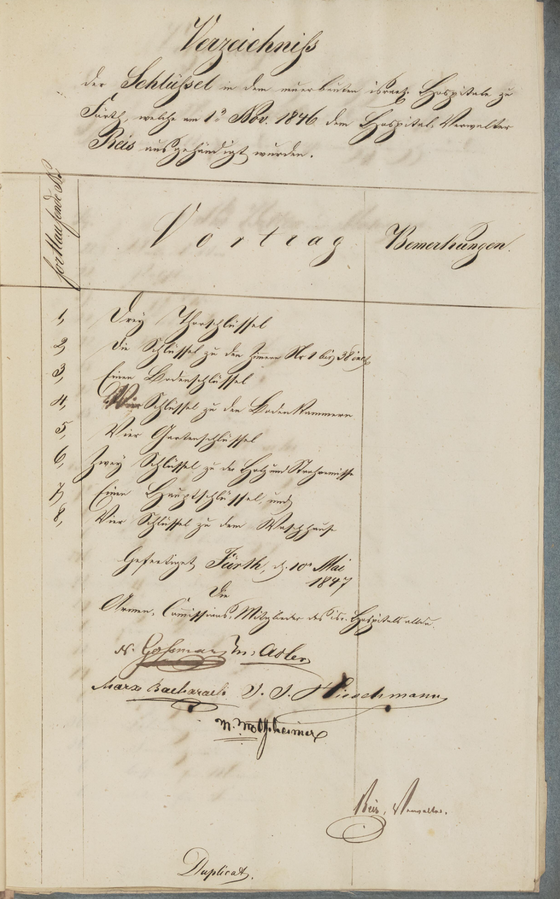 Verzeichniß
der Schlüssel in dem neuerbauten israel. Hospitale zu
Fürth, welche am 1n Nov. 1846 dem Hospital-Verwalter
Reis ausgehändigt wurden.
fortlaufende No
Vortrag
Bemerkungen.
1, Drey Thorschlüssel
2, die Schlüssel zu den Zimern Nr. 1 bis 38 incl.
3, Einen Bodenschlüssel
4, Schlüssel zu den Bodenkammern
5, Vier Gartenschlüssel
6, Zwey Schlüssel zu der Holz und
7, Einen Hauptschlüssel, und
8, Vier Schlüssel zu dem Waschhause
Gefertiget Fürth, d. 10n Mai
1847
Die
Armen-Comissions-Mitglieder des isr. Hospitals
M. Adler
Marx Bacharach J. J. Hirschmann
Reis, Verwalter.
Duplicat.